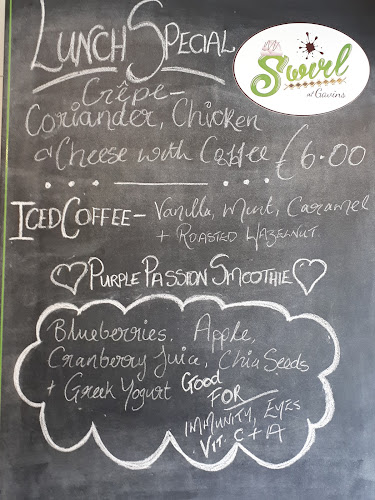 Lunch Special
Swirl
at Gavins
Crêpe -
Coriander, Chicken
& Cheese with Coffee €6.00
Iced Coffee - Vanilla, Mint, Caramel
+ Roasted Hazelnut
Purple Passion Smoothie
Blueberries, Apple,
Cranberry Juice, Chia Seeds
+ Greek Yogurt Good
For
Immunity, Eyes
Vit. C + A